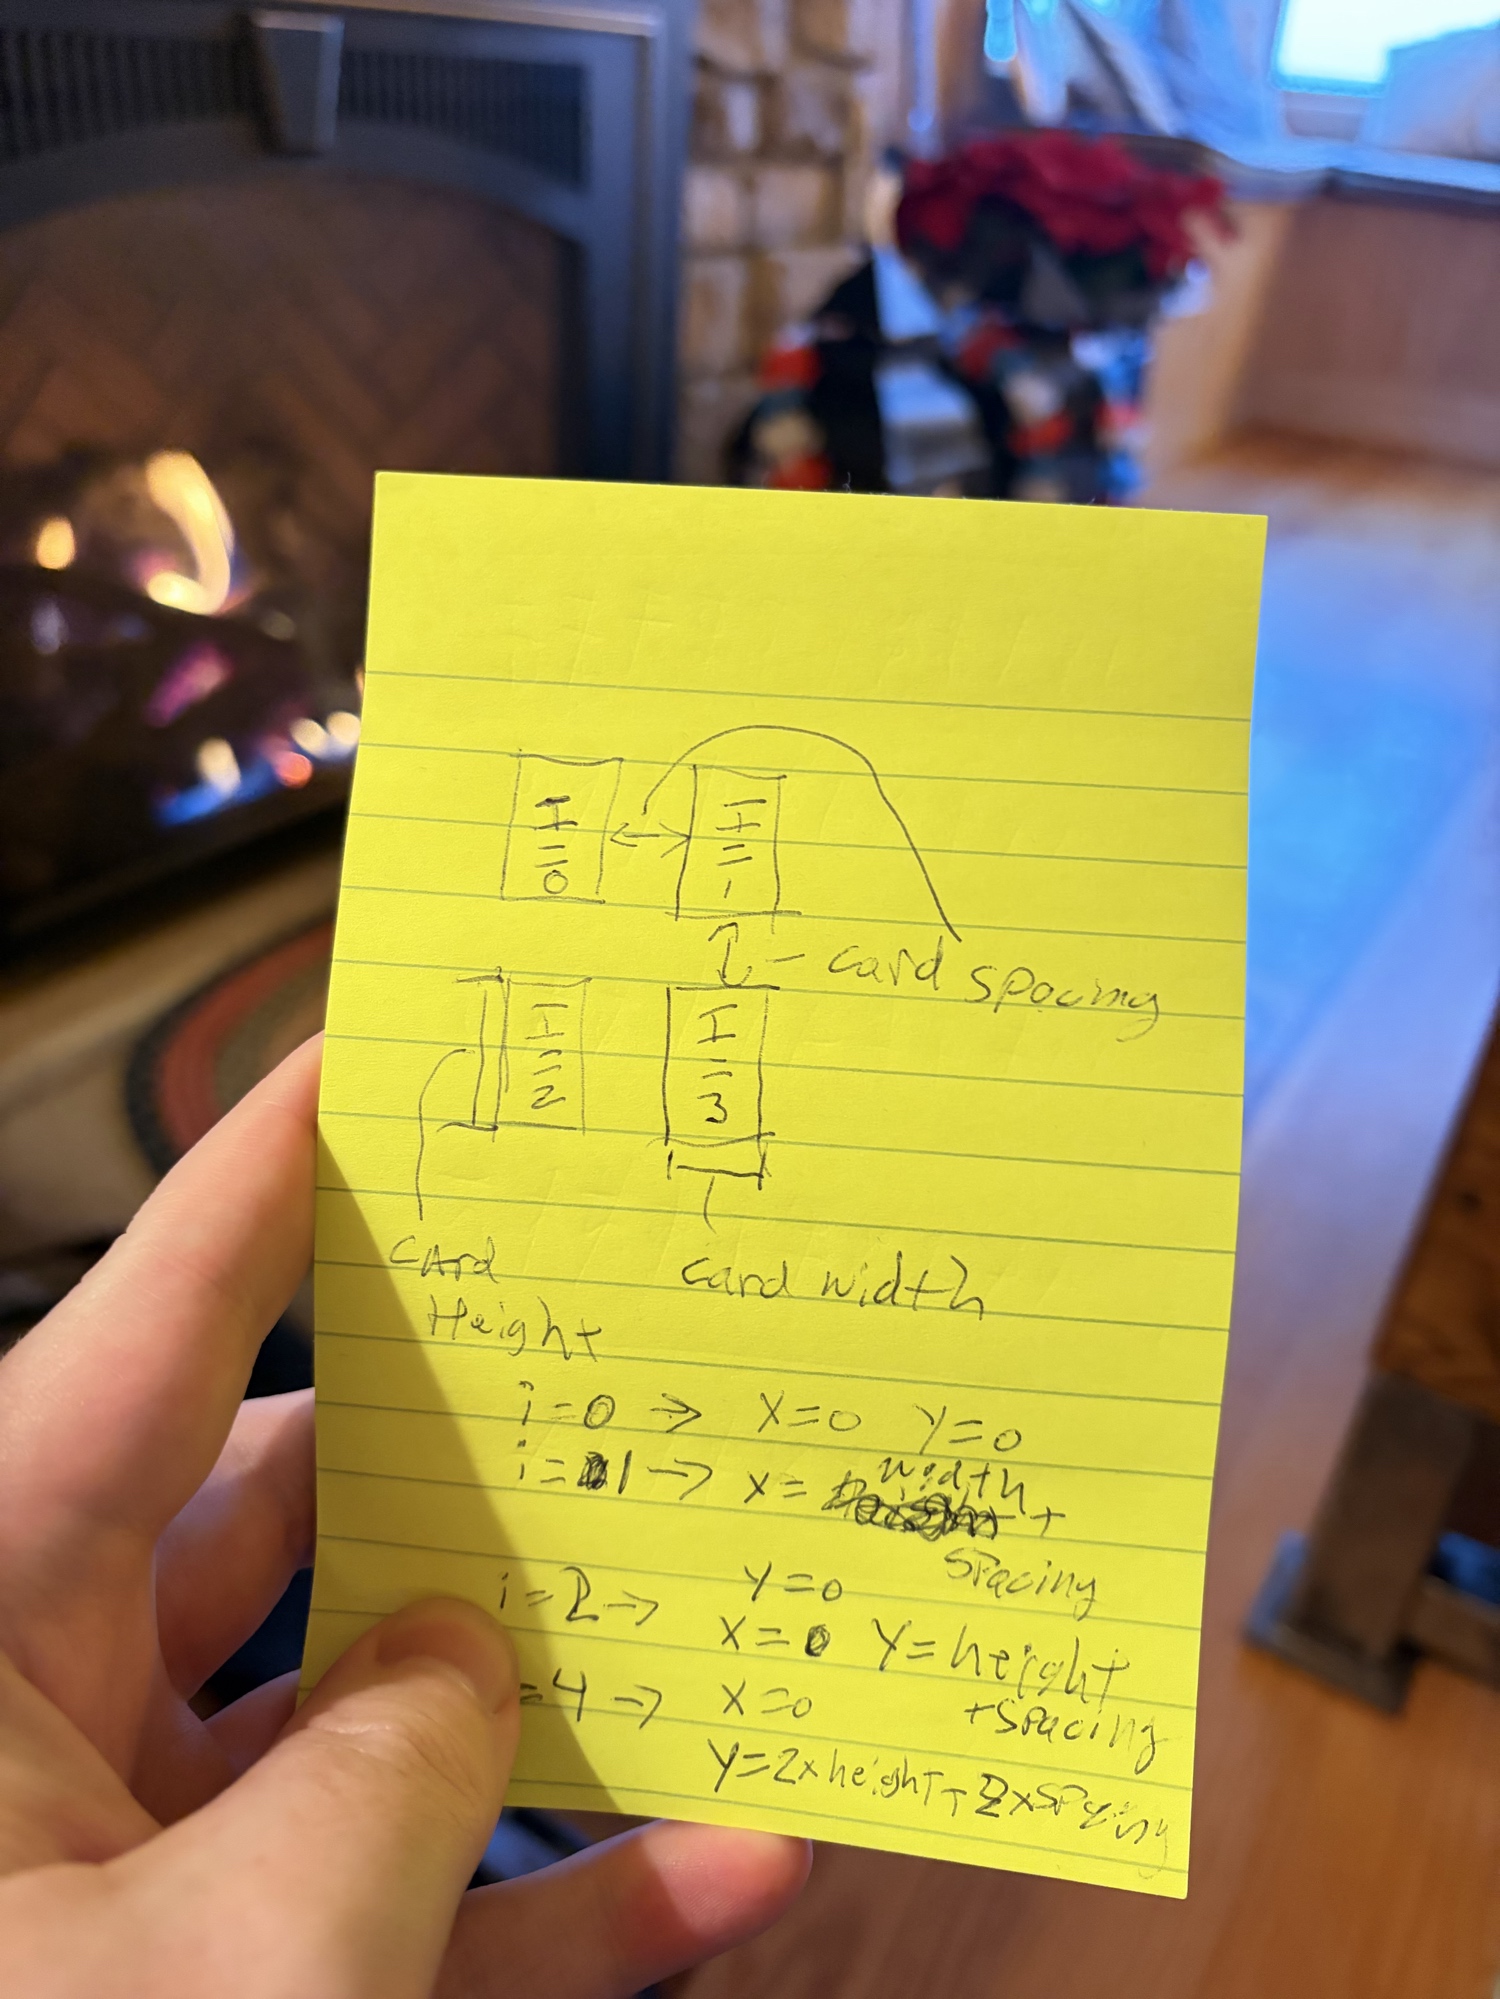 I = 0
I = 1
card spacing
I = 2
I = 3
CArd Height
card width
i=0 → X=0 Y=0
i=1 → X= width +
spacing
Y=0
i=2 →
X=0 Y=height
+spacing
=4 → X=0
Y=2xheight+2xspacing